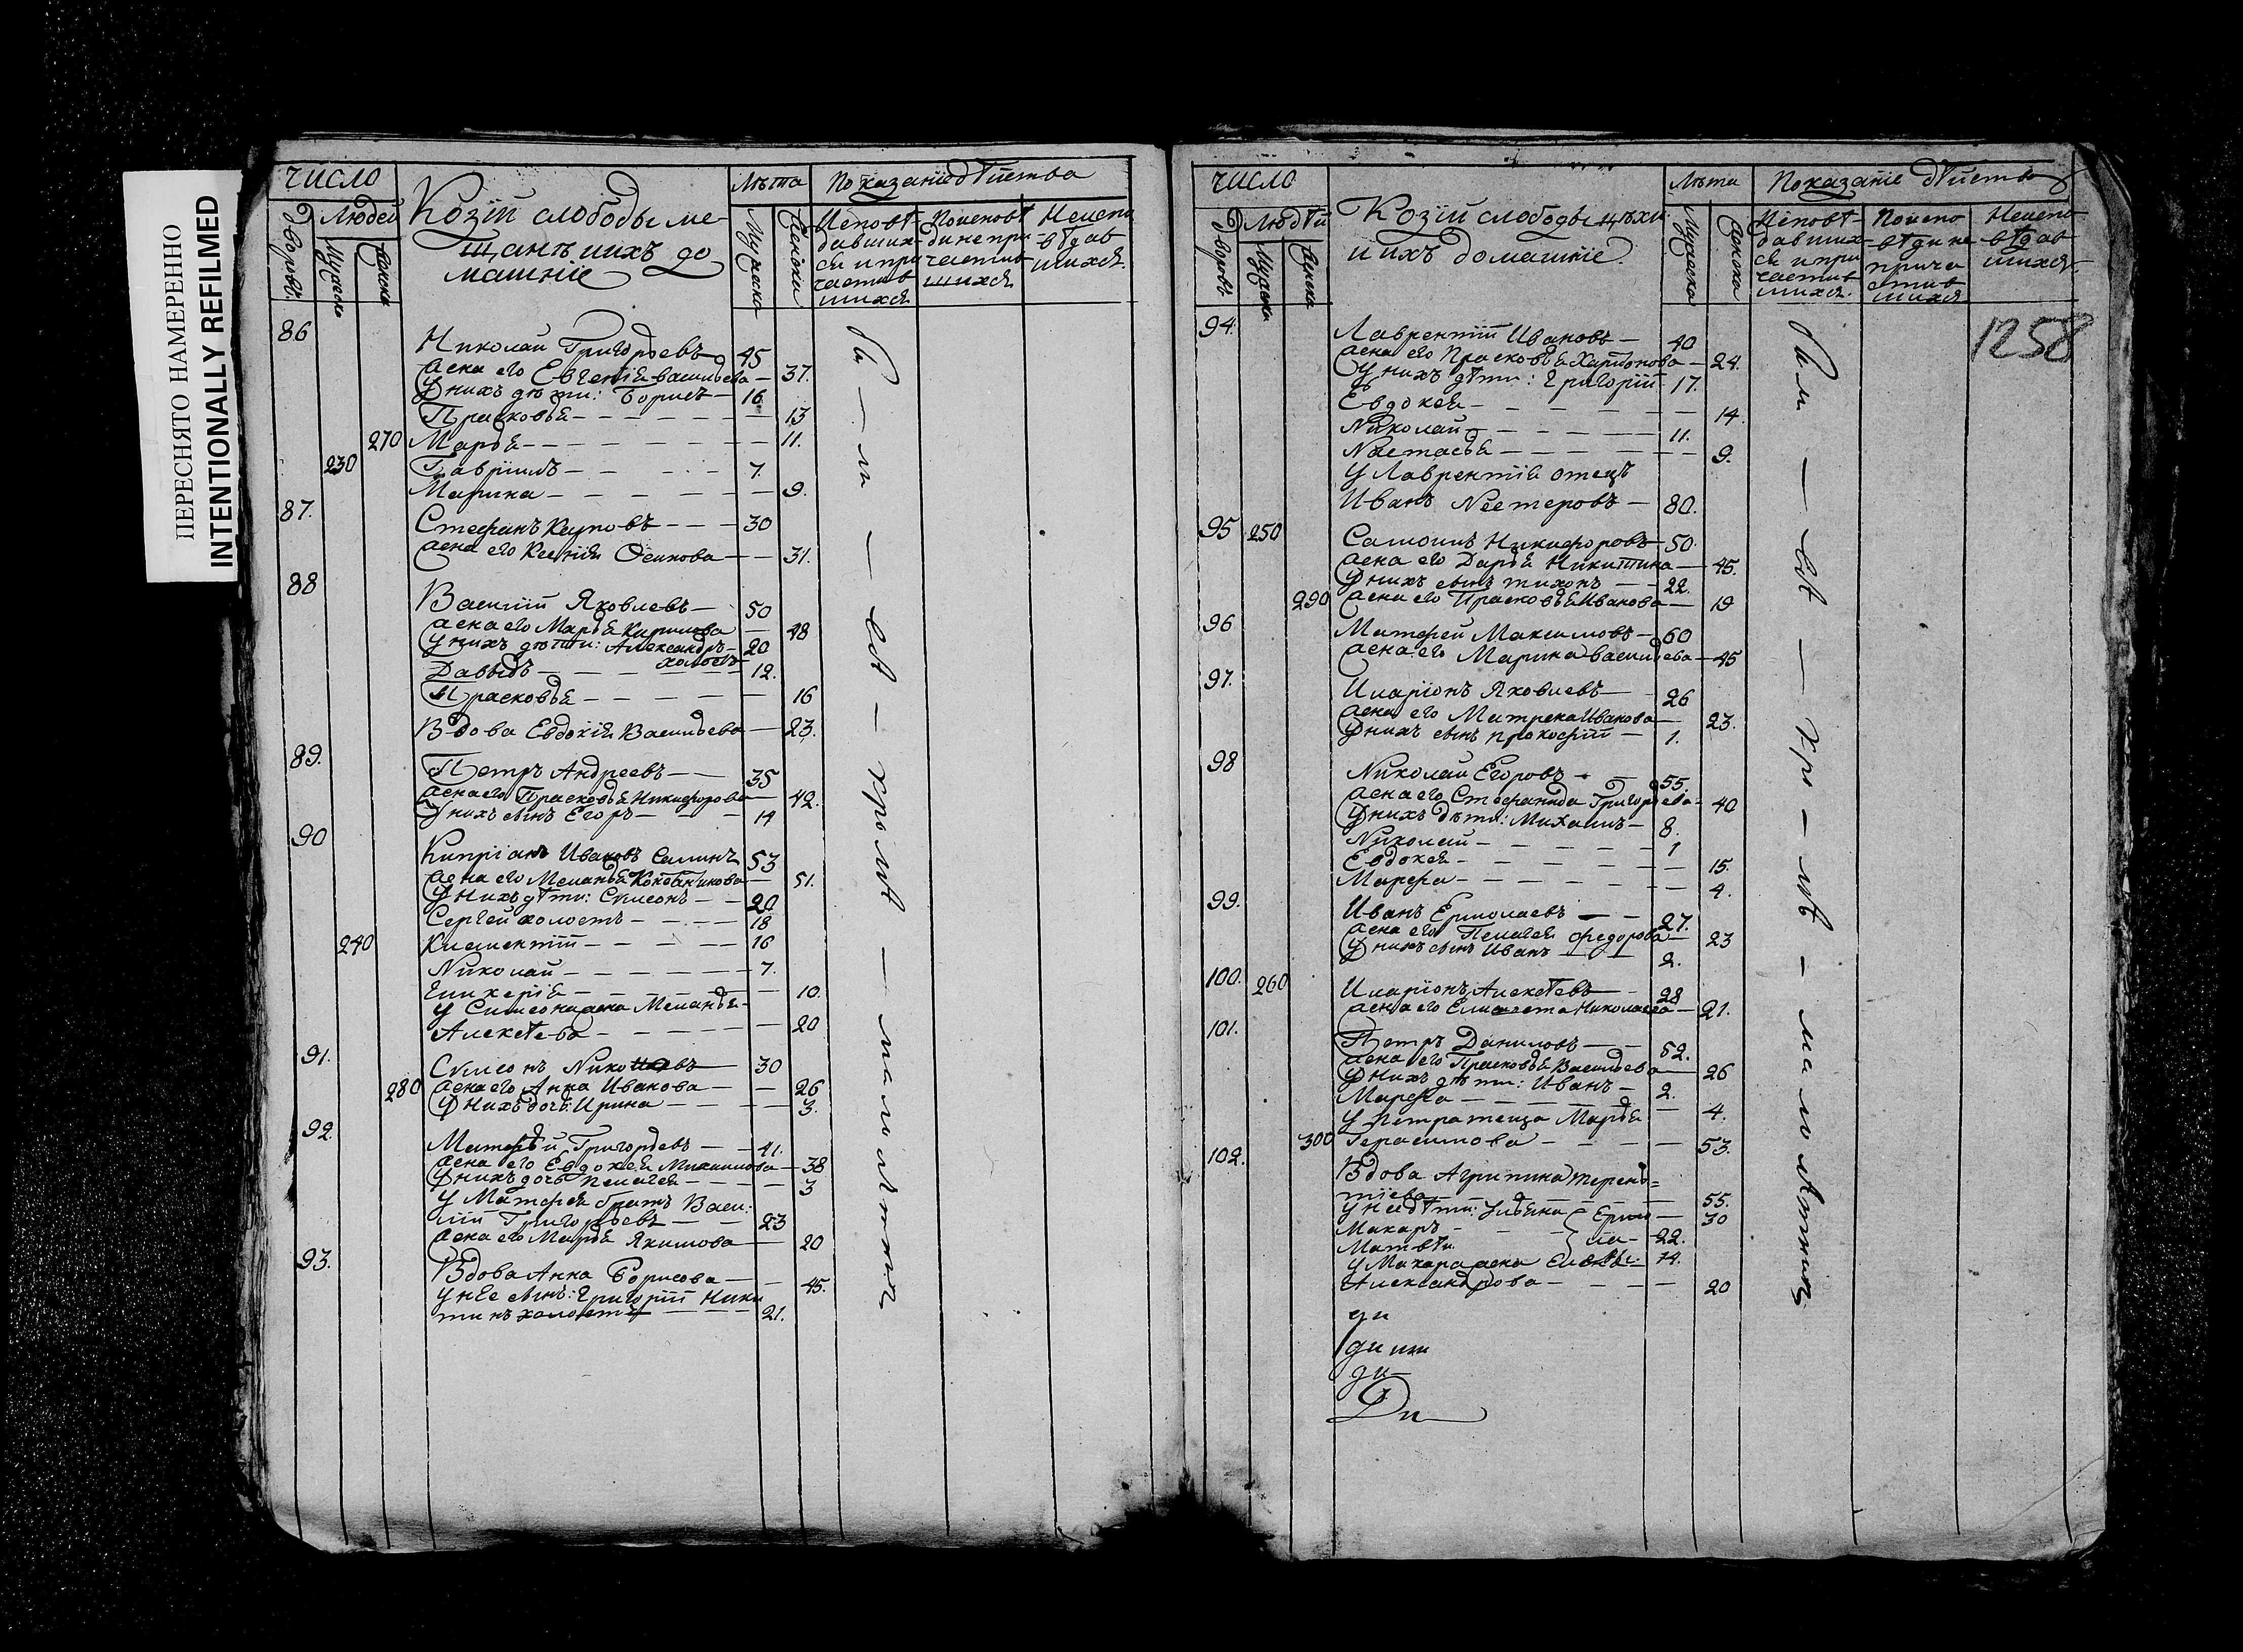 ПЕРЕСНЯТО НАМЕРЕННО
INTENTIONALLY REFILMED
число
Козїй слободы ме-
щанъ ихъ до
машнїе
Лѣта
Показанїе дѣйства
дворовъ
Людей
Мужеска
Женска
Мужеска
Женски
Исповѣ-
давших-
ся и при
частив
шихся
Поисповѣ
дине при
частив
шихся
Неиспо
вѣдав
шихся.
86
Николай Григорьевъ 45
жена его Евгенїя васильева — 37.
У нихъ дѣти: Борисъ — 16
Прасковья — 13
270 Марья — 11.
230 Гаврїилъ — 7.
Марина — 9.
87.
Стефанъ Карповъ — 30
жена его Ксенїя Осипова — 31.
88
Василїй Яковлевъ — 50
жена его Марья Кирилова — 48
у нихъ дѣти: Александръ — 20
холостъ
Давыдъ — 12.
Прасковья — 16
Вдова Евдокїя Васильева — 23.
89.
Петръ Андреевъ — 35
жена его Прасковья Никифорова — 42.
У нихъ сынъ Егоръ — 14
90
Кипрїанъ Ивановъ Салинъ 53
жена его Меланья — 51.
У нихъ дѣти: Симеонъ — 20
Сергей холостъ — 18
240 Климентїй — 16
Николай — 7.
Гликерїя — 10.
у Симеона жена Меланья
Алексѣева — 20
91.
Симеонъ — 30
280 жена его Анна Иванова — 26
У нихъ дочь Ирина — 3.
92.
Матфей Григорьевъ — 41.
жена его Евдокея Михаилова — 38
У нихъ дочь Пелагея — 3
У Матфея братъ Васи:
лїй Григорьевъ — 23
жена его Марья Якимова — 20
93.
Вдова Анна Борисова — 45.
у нее сынъ: Григорїй Ники
тинъ холостъ — 21.
число
Козїй слободы цѣхи
и ихъ домашнїе
Лѣта
Показанїе дѣйства
дворовъ
Людѣй
Мужеска
Женска
Мужеска
Женска
Исповѣ-
давших-
ся и при
частив
шихся.
Поиспо
вѣди не
прича
стив
шихся
Неиспо
вѣдав
шихся.
1258
94.
Лаврентїй Ивановъ — 40
жена его Прасковья Харитонова — 24.
У нихъ дѣти: Григорїй 17.
Евдокея — 14
Николай — 11.
Настасья — 9.
У Лаврентїя отецъ
Иванъ Нестеровъ — 80.
95 250
Самоилъ Никифоровъ — 50.
жена его Дарья Никитина — 45.
У нихъ сынъ тихонъ — 22.
290 жена его Прасковья Иванова — 19
96
Матфей Максимовъ — 60
жена его Марина васильева — 45
97.
Иларїонъ Яковлевъ — 26
жена его Матрена Иванова — 23.
У нихъ сынъ прокофїй — 1.
98
Николай Егоровъ — 55.
жена его Стефанида Григорьева — 40
У нихъ дѣти: Михаилъ — 8.
Николай — 1
Евдокея — 15.
Марфа — 4.
99.
Иванъ Ермолаевъ — 27.
жена его Пелагея федорова — 23
У нихъ сынъ Иванъ 2.
100. 260
Иларїонъ Алексѣевъ — 28
жена его Николаева — 21.
101.
Петръ Даниловъ — 52.
жена его Прасковья Васильева — 26
У нихъ дѣти: Иванъ — 2.
Марфа — 4.
у петра теща Марья
300 Герасимова — 53.
102.
Вдова Агрипина терень=
тїева — 55.
у нее дѣти: 30
Макаръ — 22.
Матвѣй 14.
у Макара жена
Александрова — 20
ди
Ди